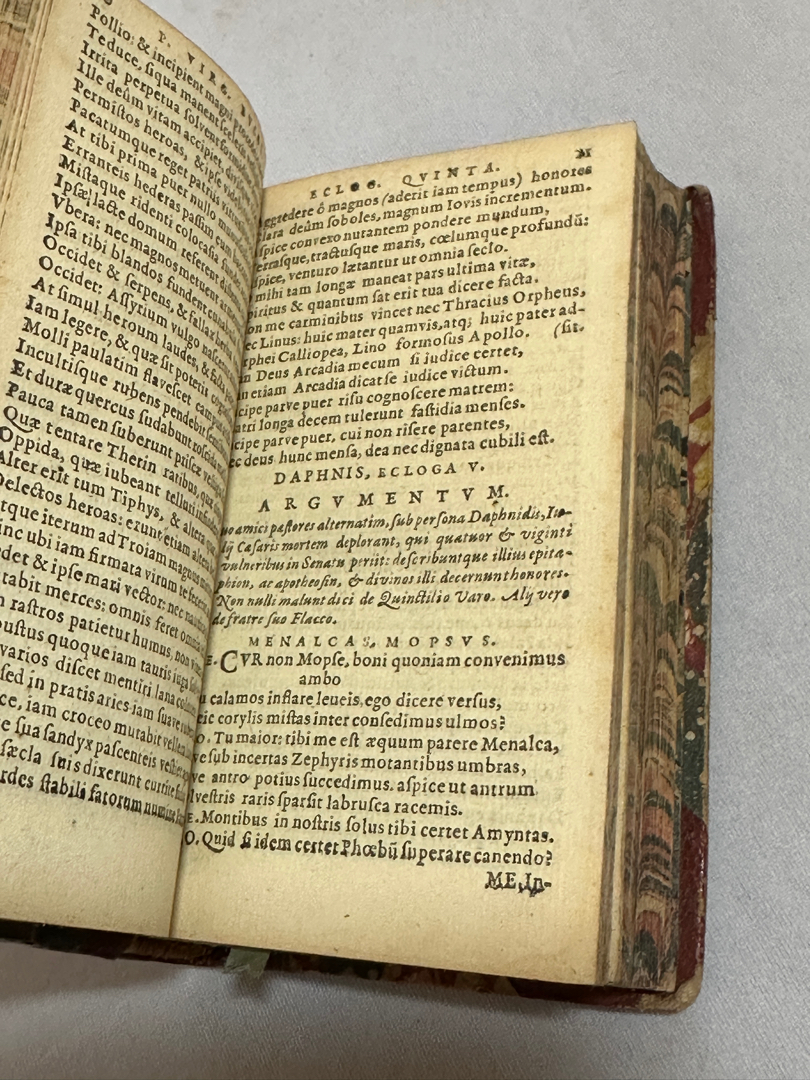 P. VIRG. BVC
Pollio: & incipient magni
Teduce, siqua manent sceleris
Irrita perpetua solvent formidine
Ille deûm vitam accipiet, divisq;
Permistos heroas, & ipse videbitur
Pacatumque reget patriis virtutibus
At tibi prima puer nullo munuscula
Erranteis hederas passim cum baccare
Mistaque ridenti colocasia fundet
Ipsæ lacte domum referent distenta
Vbera: nec magnos metuent armenta
Ipsa tibi blandos fundent cunabula
Occidet & serpens, & fallax herba
Occidet: Assyrium vulgo nascetur
At simul heroum laudes, & facta
Iam legere, & quæ sit poteris cognoscere
Molli paulatim flavescet campus
Incultisque rubens pendebit sentibus
Et duræ quercus sudabunt roscida
Pauca tamen suberunt priscæ vestigia
Quæ tentare Thetin ratibus, quæ
Oppida, quæ iubeant telluri infindere
Alter erit tum Tiphys, & altera
Delectos heroas: erunt etiam altera
tque iterum ad Troiam magnus
inc ubi iam firmata virum te fecerit
edet & ipse mari vector: nec nautica
tabit merces: omnis feret omnia
n rastros patietur humus, non
bustus quoque iam tauris iuga solvet
varios discet mentiri lana colores
sed in pratis aries iam suave
ce, iam croceo mutabit vellera
e sua sandyx pascenteis vestiet
sæcla suis dixerunt currite fusis
rdes stabili fatorum numine
ECLOG. QVINTA.
ggredere ô magnos (aderit iam tempus) honores
lara deûm soboles, magnum Iovis incrementum.
spice convexo nutantem pondere mundum,
errasque, tractusque maris, cœlumque profundũ:
spice, venturo lætantur ut omnia seclo.
mihi tam longæ maneat pars ultima vitæ,
piritus & quantum sat erit tua dicere facta.
on me carminibus vincet nec Thracius Orpheus,
ec Linus: huic mater quamvis, atq; huic pater ad-
rphei Calliopea, Lino formosus Apollo. (sit.
n Deus Arcadia mecum si iudice certet,
n etiam Arcadia dicat se iudice victum.
cipe parve puer risu cognoscere matrem:
atri longa decem tulerunt fastidia menses.
cipe parve puer, cui non risere parentes,
ec deus hunc mensa, dea nec dignata cubili est.
DAPHNIS, ECLOGA V.
ARGVMENTVM.
uo amici pastores alternatim, sub persona Daphnidis, Iu-
lij Cæsaris mortem deplorant, qui quatuor & viginti
vulneribus in Senatu periit: describuntque illius epita-
phion, ac apotheosin, & divinos illi decernunt honores.
Non nulli malunt dici de Quinctilio Varo. Alij vero
de fratre suo Flacco.
MENALCAS, MOPSVS.
E. CVR non Mopse, boni quoniam convenimus
ambo
u calamos inflare leueis, ego dicere versus,
eic corylis mistas inter consedimus ulmos?
O. Tu maior: tibi me est æquum parere Menalca,
ve sub incertas Zephyris motantibus umbras,
ve antro potius succedimus. aspice ut antrum
lvestris raris sparsit labrusca racemis.
E. Montibus in nostris solus tibi certet Amyntas.
O. Quid si idem certet Phœbũ superare canendo?
ME. In-